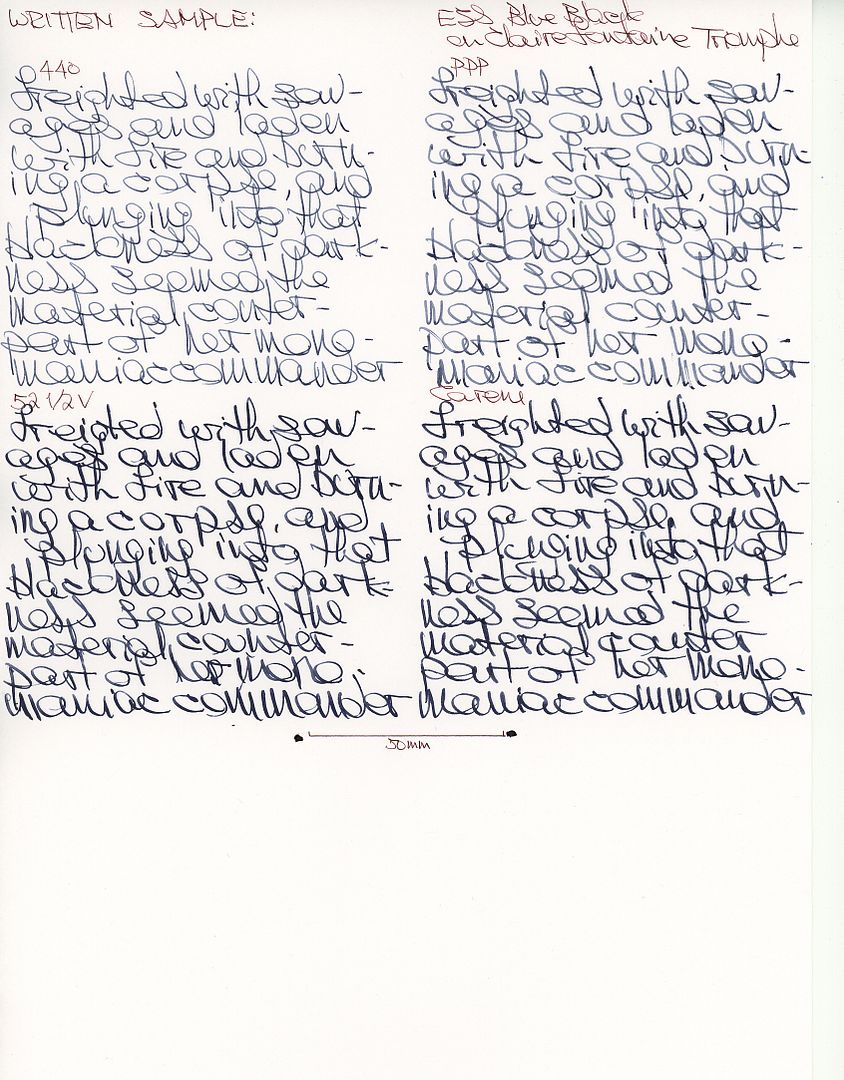 WRITTEN SAMPLE:
ESS Blue Black
on Clairefontaine Triomphe
440
freighted with sav-
ages and laden
with fire and burn-
ing a corpse, and
plunging into that
blackness of dark-
ness seemed the
material counter-
part of her mono-
maniac commander
PPP
freighted with sav-
ages and laden
with fire and burn-
ing a corpse, and
plunging into that
blackness of dark-
ness seemed the
material counter-
part of her mono-
maniac commander
52 1/2 V
freigted with sav-
ages and laden
with fire and burn-
ing a corpse, and
plunging into that
blackness of dark-
ness seemed the
material counter-
part of her mono-
maniac commander
Carene
freighted with sav-
ages and laden
with fire and burn-
ing a corpse, and
plunging into that
blackness of dark-
ness seemed the
material counter
part of her mono-
maniac commander
50mm